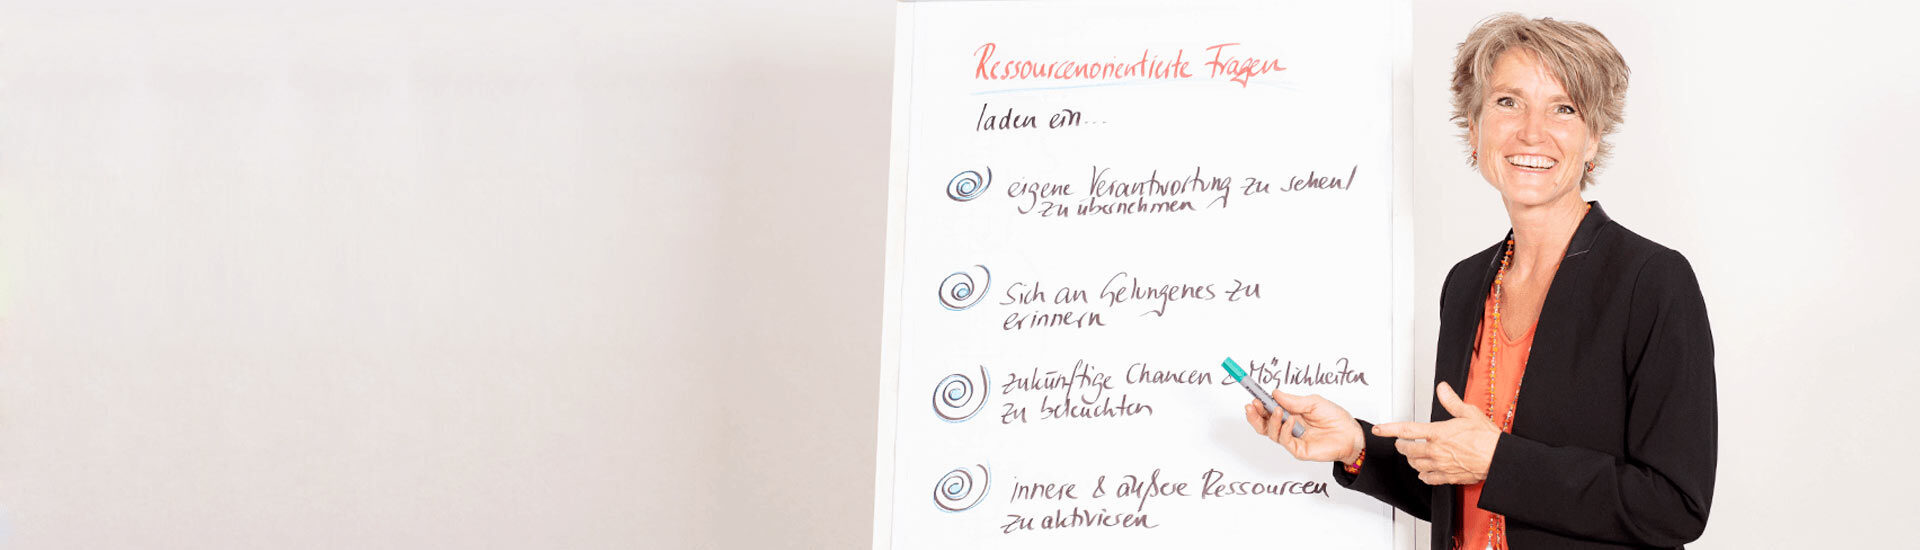 Ressourcenorientierte Fragen
laden ein...
eigene Verantwortung zu sehen/
zu übernehmen
sich an Gelungenes zu
erinnern
zukünftige Chancen & Möglichkeiten
zu beleuchten
innere & äußere Ressourcen
zu aktivieren